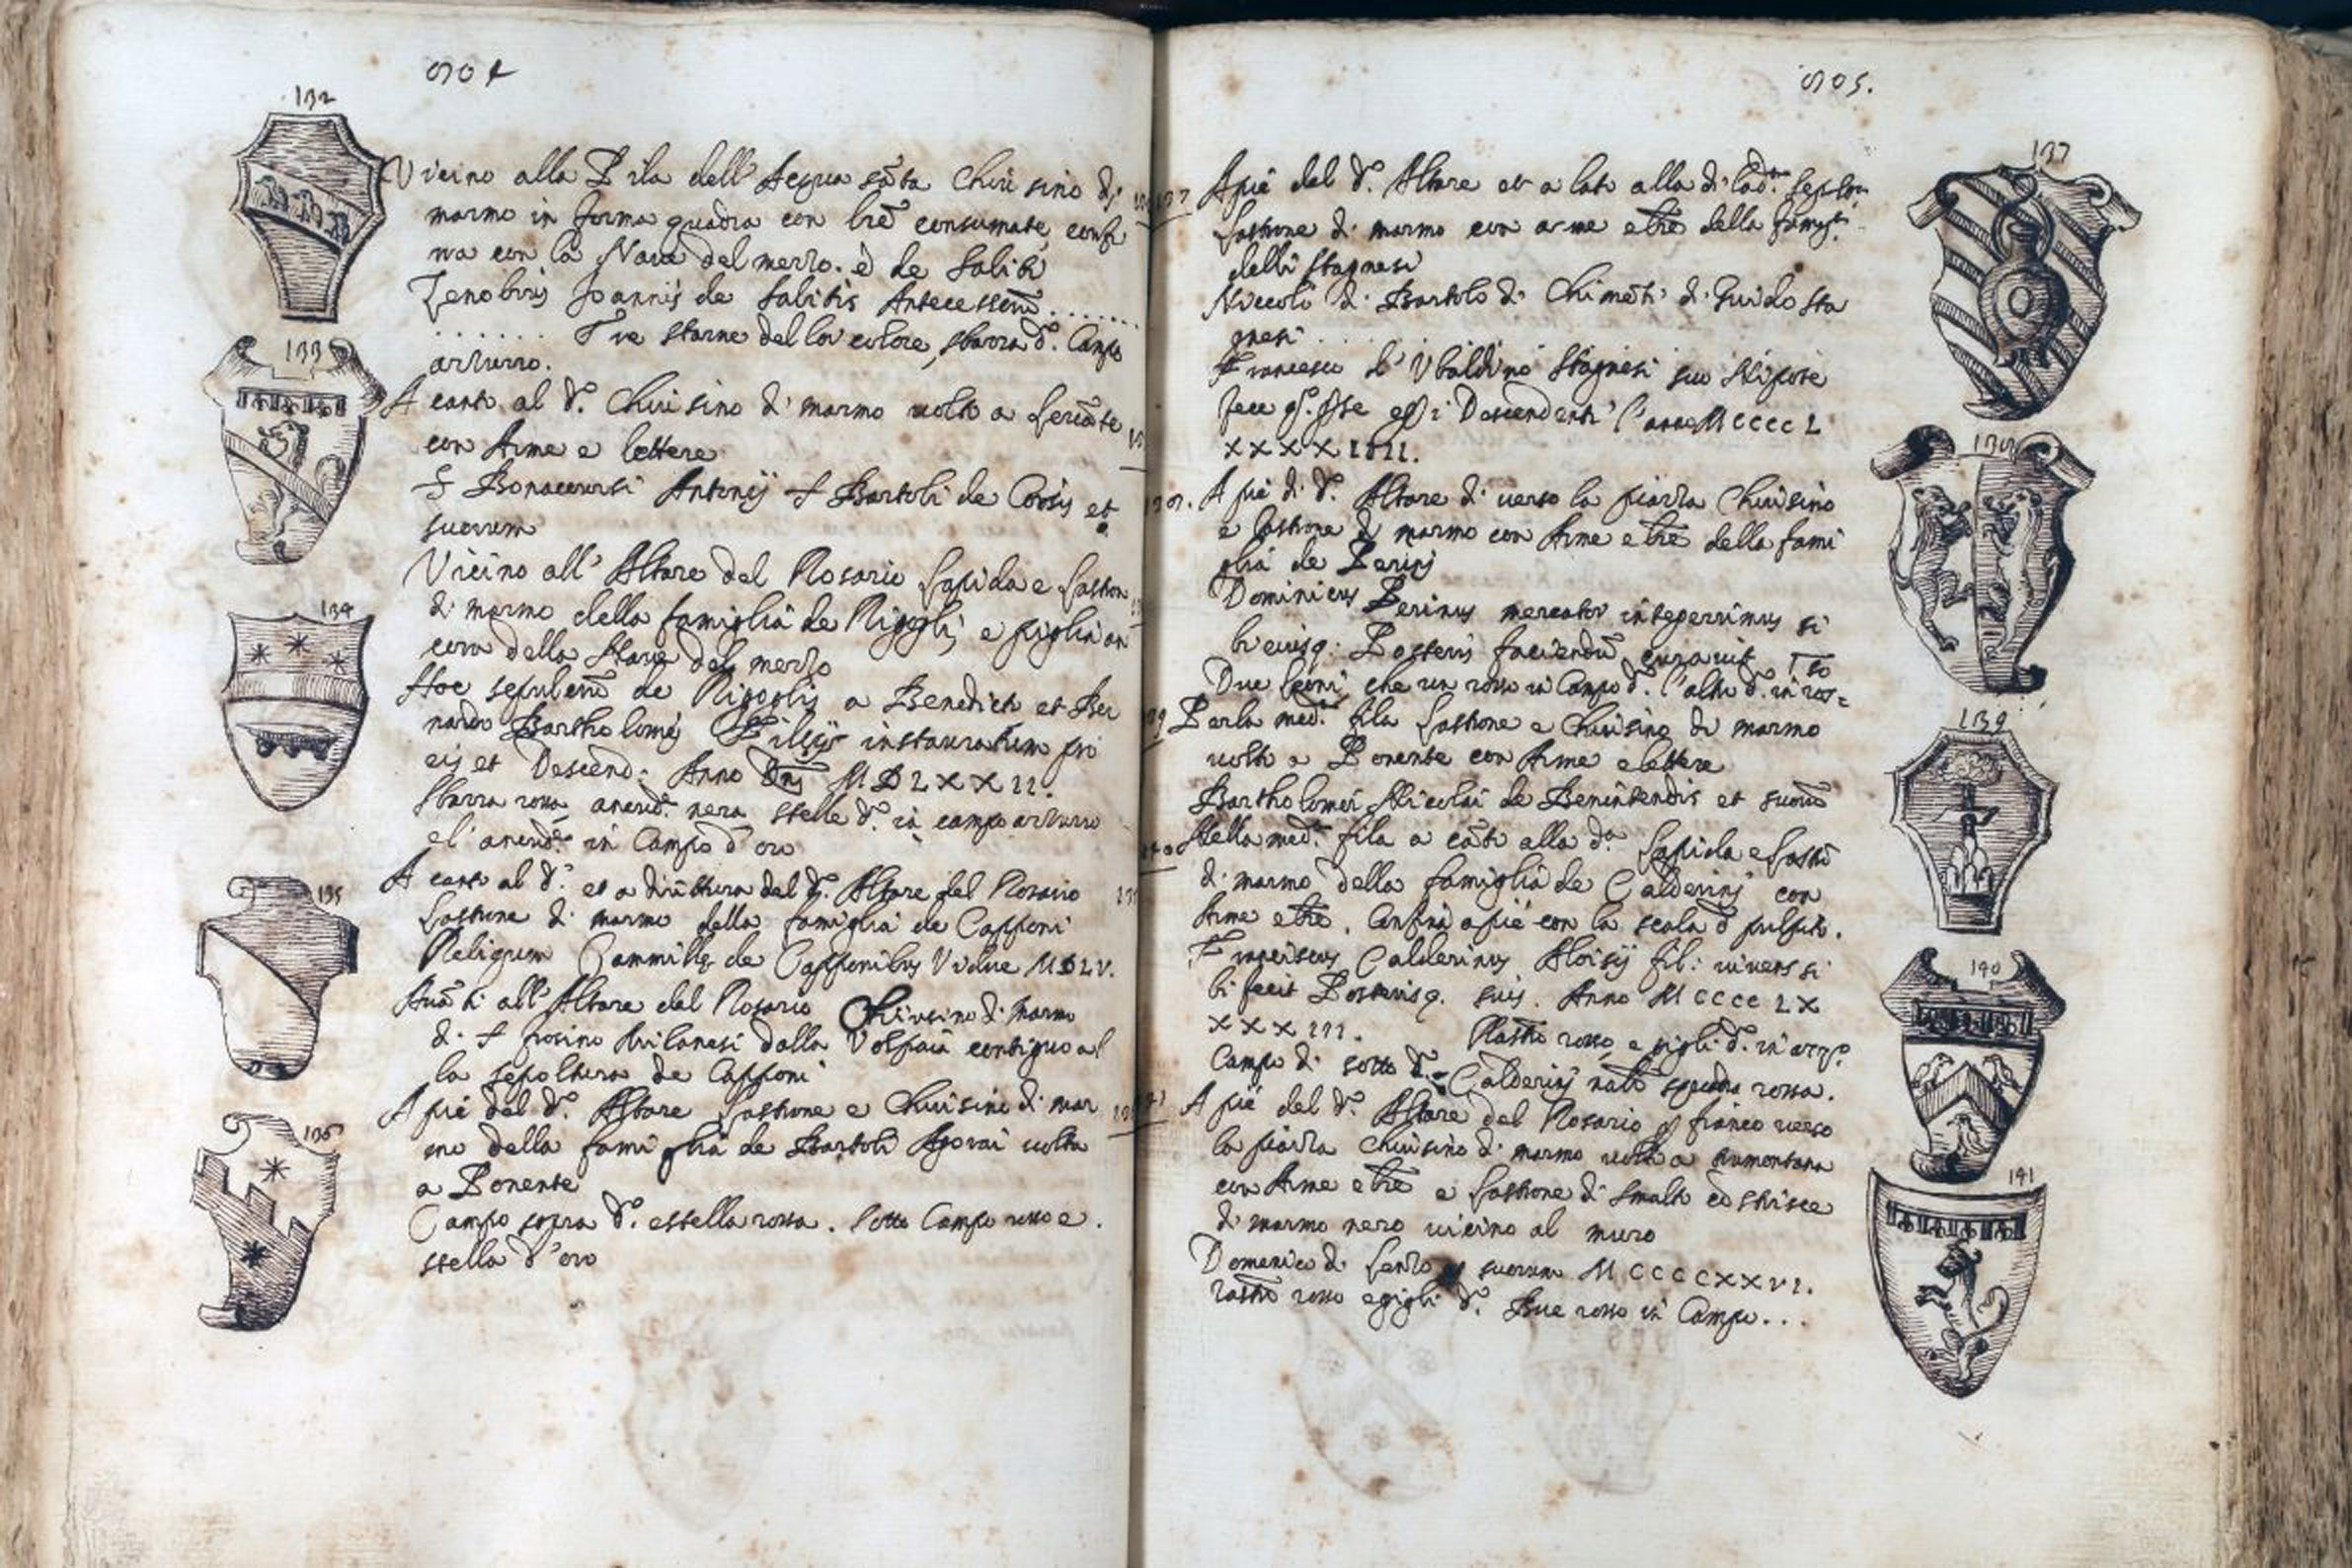 904
132
Vicino alla Pila dell' Acqua sãta Chiusino di
marmo in forma quadra con lrē consumate, confi
na con la Nave del mezzo. è de Saliti
Zenobius Joannis de Salitis Antecessorū.......
....... Tre starne del lor colore, sbarra d'. Campo
azzurro.
133
A canto al d°. Chiusino di marmo volto a Levãte
con Arme e lettere
S Bonaccursi Antonij S Bartoli de Corsis et
suorum
134
Vicino all' Altare del Rosario Lapida e Lastron
di marmo della famiglia de Rigogli e piglia an
cora della Nave del mezzo
Hoc sepulcrū de Rigoglis a Benedicto et Ber
nardo Bartholomei Filijs instauratum pro
eis et Descend: Anno Dni MDLXXII.
Sbarra rossa ancud.e nera stelle d'. in campo azzurro
e l'ancud.e in Campo d'oro
135
A canto al d°. et a dirittura del d°. Altare del Rosario
Lastrone di marmo della famiglia de Capponi
Religum Cammille de Capponibus Vidue MDLV.
Avãti all' Altare del Rosario Chiusino di marmo
di S frosino Milanesi dalla Volpaia contiguo al
la sepoltura de Capponi
136
A piè del d°. Altare Lastrone e Chiusino di mar
mo della famiglia de Bartoli Agorai volta
a Ponente
Campo sopra d'. e stella rossa. Sotto Campo rosso e.
stella d'oro
905.
137
A piè del d°. Altare et a lato alla di
Lastrone di marmo con arme e lrē della famigl.
delli Stagnesi
Niccolò di Bartolo di Chimēti di Guido Sta
gnesi....
Francesco d'Ubaldino Stagnesi suo Nipote
fece p. sse e p. i Descendenti l'anno MCCCCL
XXXXIIII.
138
A piè di d°. Altare di verso la piazza Chiusino
e lastrone di marmo con Arme e lrē della fami
glia de Perini
Dominicus Perinus mercator integerrimus si
bi eiusq: Posteris faciendū curavit
Due leoni, che un rosso in Campo d'. l'altro d'. in ros=
so
139
Per la med.a fila Lastrone e Chiusino di marmo
volto a Ponente con Arme e lettere
Bartholomei Nicolai de Benintendis et suorū
140
Nella med.a fila a cãto alla d.a Lapida e Lastrō
di marmo della famiglia de Calderini con
Arme e lrē. Confina a piè con la scala d pulpito.
Franciscus Calderinus Aloisij fil: vivens si
bi fecit Posterisq. suis. Anno MCCCCLX
XXXIII. Rastro rosso e gigli d'. in azz.o
Campo di sotto d'. Calderini nalto squadra rossa.
141
A piè del d°. Altare del Rosario p fianco verso
la piazza Chiusino di marmo volto a tramontana
con Arme e lrē e Lastrone di smalto cō strisce
di marmo nero vicino al muro
Domenico di Lenzo et suorum MCCCCXXVI.
Rastro rosso e gigli d'. Bue rosso in Campo...